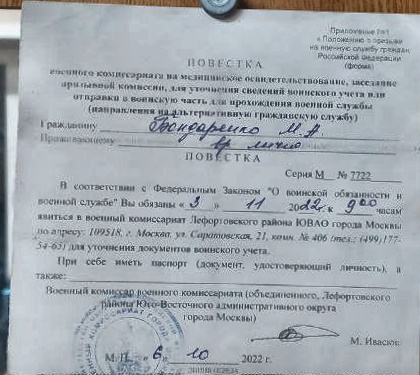 Приложение №1
к Положению о призыве
на военную службу граждан
Российской Федерации
(форма)
ПОВЕСТКА
военного комиссариата на медицинское освидетельствование, заседание
призывной комиссии, для уточнения сведений воинского учета или
отправки в воинскую часть для прохождения военной службы
(направления на альтернативную гражданскую службу)
Гражданину Бондаренко М.А.
Проживающему лично
ПОВЕСТКА
Серия М № 7722
В соответствии с Федеральным Законом "О воинской обязанности и
военной службе" Вы обязаны « 3 » 11 2022г. к 9 00 часам
явиться в военный комиссариат Лефортовского района ЮВАО города Москвы
по адресу: 109518, г. Москва, ул. Саратовская, 21, комн. № 406 (тел.: (499)177-
54-65) для уточнения документов воинского учета.
При себе иметь паспорт (документ, удостоверяющий личность), а
также:
Военный комиссар военного комиссариата (объединенного, Лефортовского
района Юго-Восточного административного округа
города Москвы)
М. Ивасюк
М.П. « 6 » 10 2022 г.